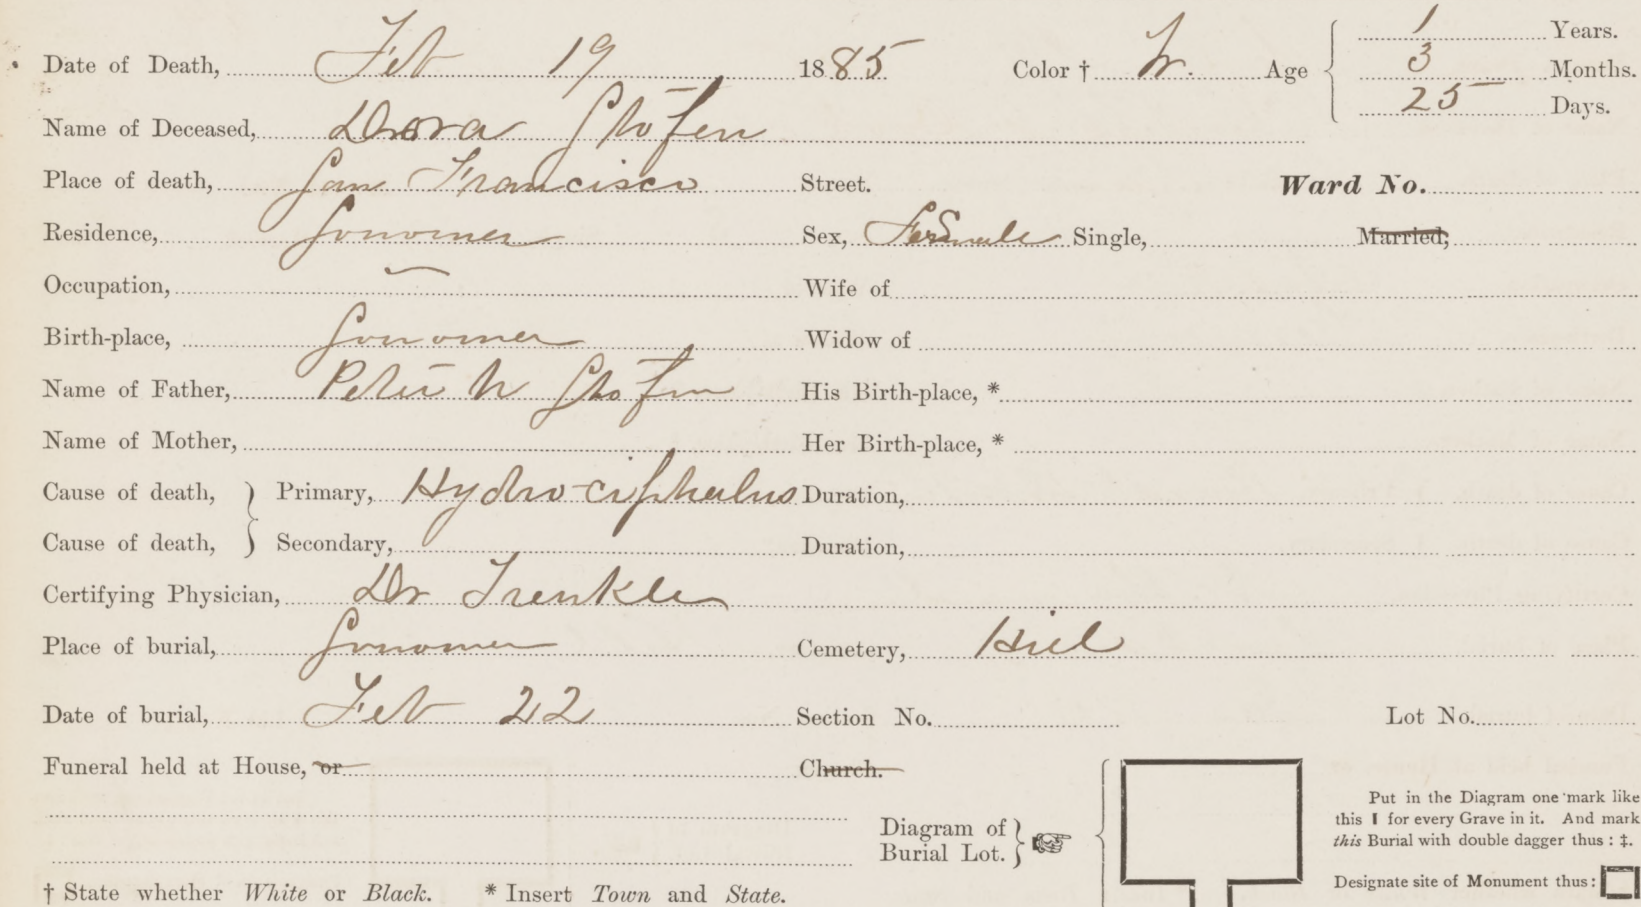 Date of Death, Feb 19 1885 Color † W. Age 1 Years.
3 Months.
25 Days.
Name of Deceased, Dora Stofen
Place of death, San Francisco Street. Ward No.
Residence, Sonomer Sex, Female Single, Married,
Occupation, — Wife of
Birth-place, Sonomer Widow of
Name of Father, Peter N Stofen His Birth-place, *
Name of Mother, Her Birth-place, *
Cause of death, } Primary, Hydro-ciphalus Duration,
Cause of death, } Secondary, Duration,
Certifying Physician, Dr Trenkle
Place of burial, Sonomer Cemetery, Hill
Date of burial, Feb 22 Section No. Lot No.
Funeral held at House, or Church.
Diagram of
Burial Lot.
Put in the Diagram one mark like
this I for every Grave in it. And mark
this Burial with double dagger thus: ‡.
Designate site of Monument thus:
† State whether White or Black. * Insert Town and State.